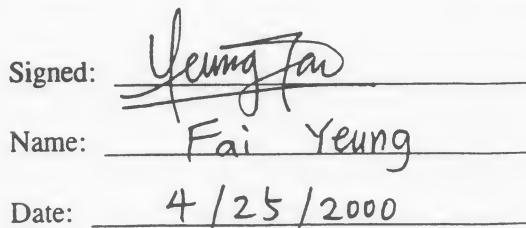 Signed: Yeung Fai
Name: Fai Yeung
Date: 4/25/2000